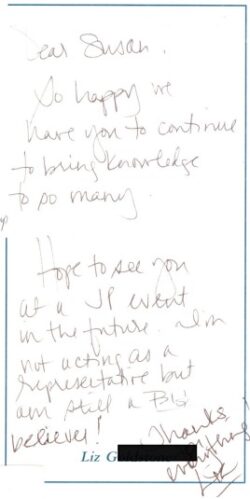 Dear Susan.
So happy we
have you to continue
to bring knowledge
to so many.
Hope to see you
at a JP event
in the future. I'm
not acting as a
representative but
am still a BIG
believer!
Thanks
everything!
Liz
Liz